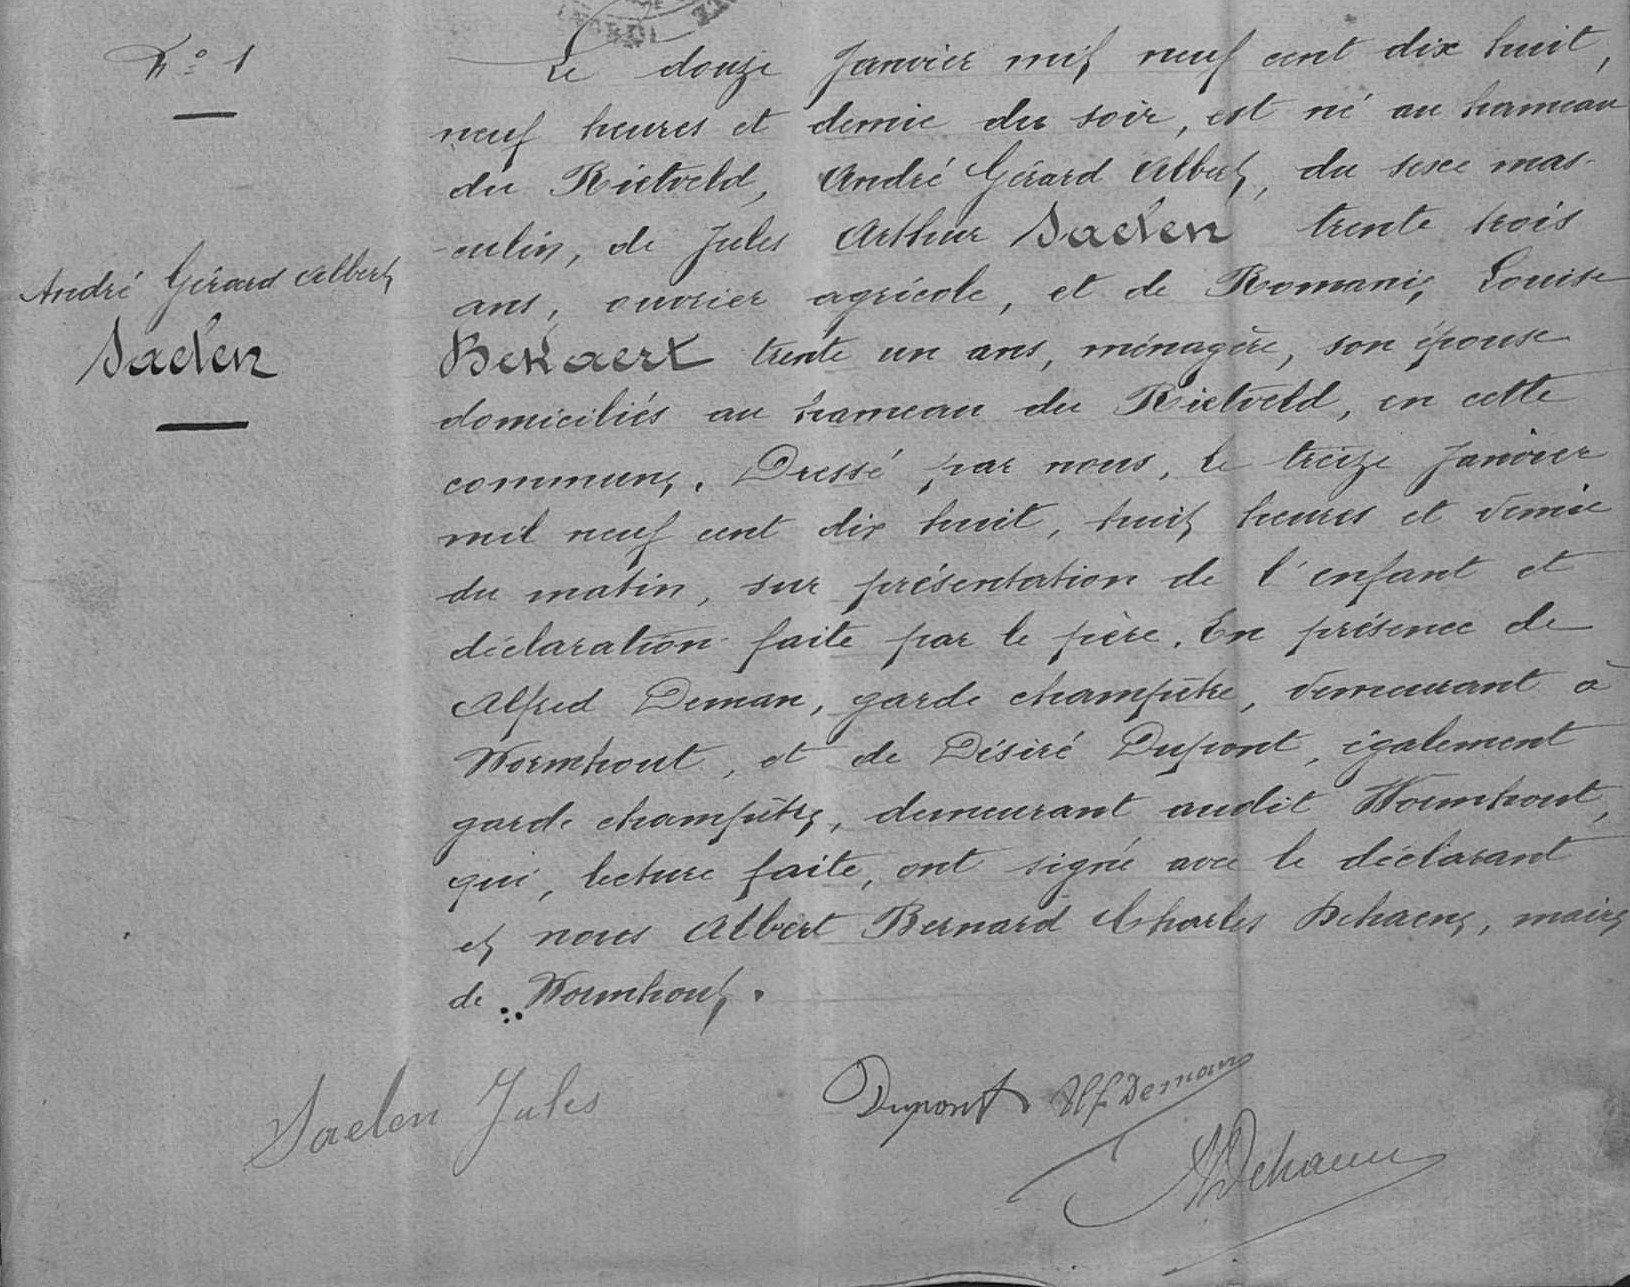 N° 1
Le douze Janvier mil neuf cent dix huit,
neuf heures et demie du soir, est né au hameau
du Rietveld, André Gérard Albert, du sexe mas-
-culin, de Jules Arthur Saelen trente trois
ans, ouvrier agricole, et de Romanie Louise
Bekaert trente un ans, ménagère, son épouse
domiciliés au hameau du Rietveld, en cette
commune. Dressé par nous, le treize Janvier
mil neuf cent dix huit, huit heures et demie
du matin, sur présentation de l'enfant et
déclaration faite par le père. En présence de
Alfred Deman, garde champêtre, demeurant à
Wormhout, et de Désiré Dupont, également
garde champêtre, demeurant audit Wormhout,
qui, lecture faite, ont signé avec le déclarant
et nous Albert Bernard Charles Dehaene, maire
de Wormhout.
André Gérard Albert
Saelen
Saelen Jules
Dupont Alf. Deman
ADehaene